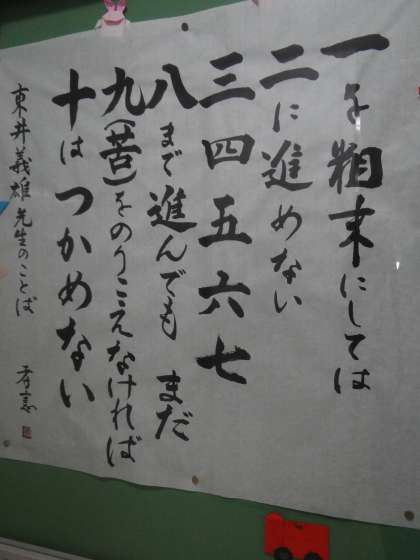 一を粗末にしては
二に進めない
三四五六七
八まで進んでも まだ
九(苦)をのりこえなければ
十はつかめない
東井義雄先生のことば